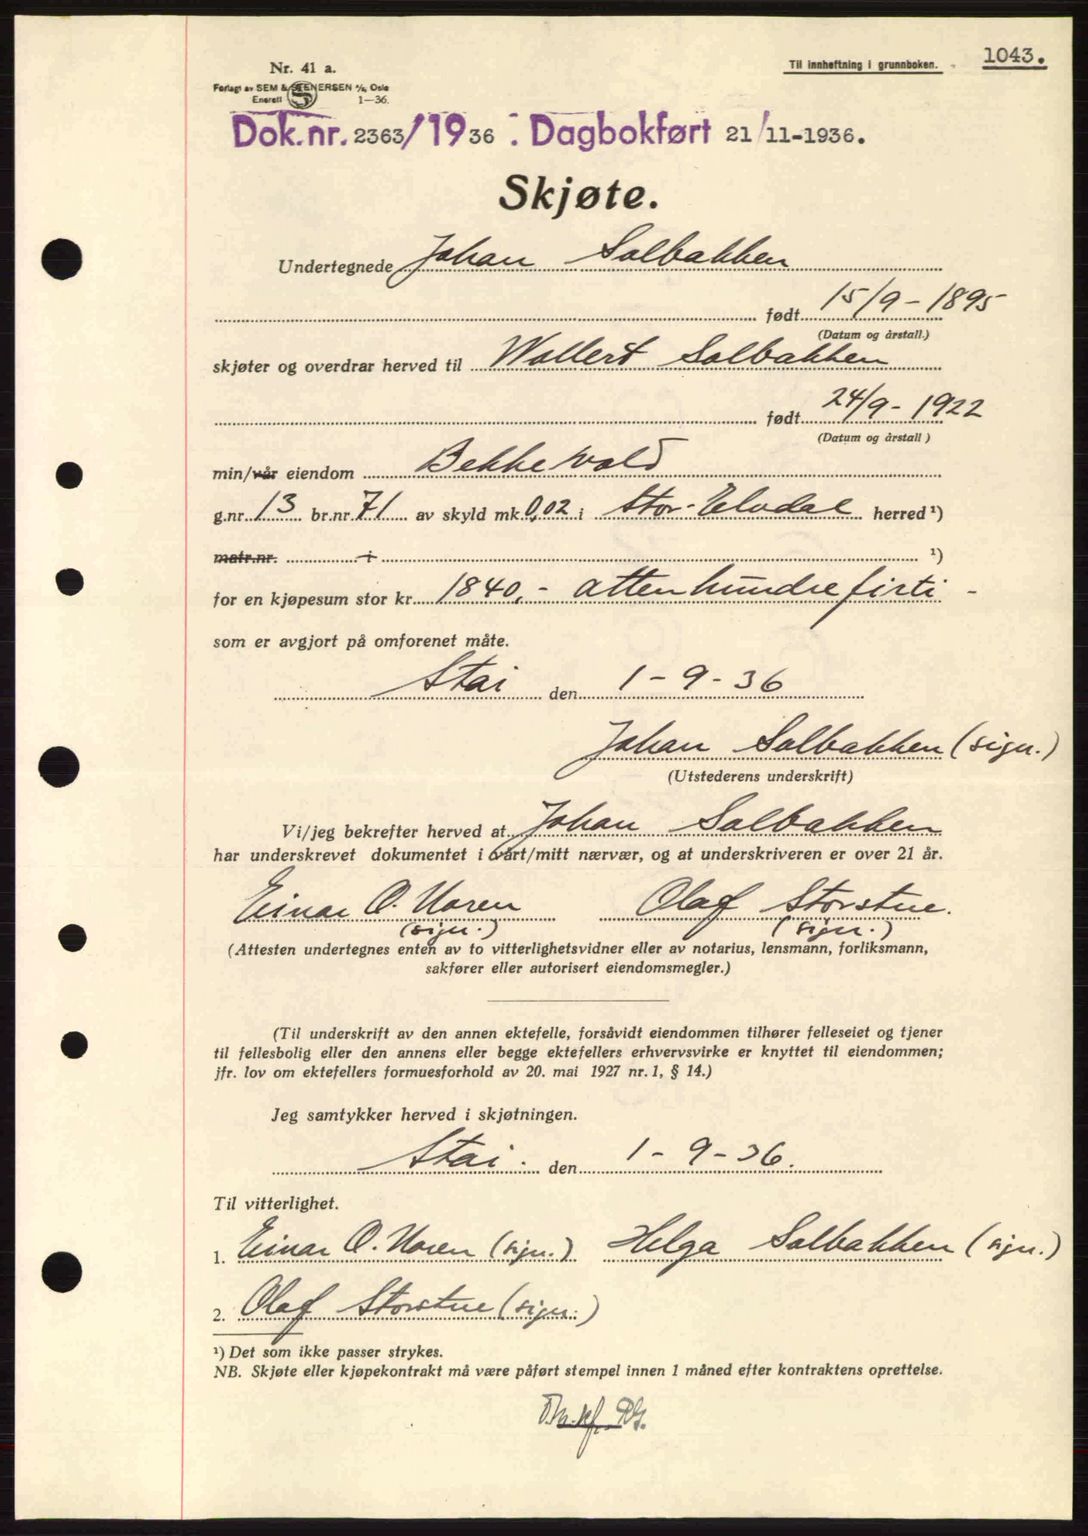 Til innheftning i grunnboken. 1043.
Nr. 41 a.
Forlagt av SEM & STENERSEN A/S, Oslo
Enerett 1—36.
Dok.nr. 2363/1936 : Dagbokført 21/11-1936.
Skjøte.
Undertegnede Johan Solbakken
født 15/9 - 1895
(Datum og årstall.)
skjøter og overdrar herved til Wollert Solbakken
født 24/9 - 1922
(Datum og årstall)
min/vår eiendom Bekkevold
g.nr. 13 br.nr. 71 av skyld mk. 0,02 i Stor-Elvdal herred ¹)
matr.nr. i ¹)
for en kjøpesum stor kr. 1840,- attenhundrefirti -
som er avgjort på omforenet måte.
Stai den 1 - 9 - 36
Johan Solbakken (sign.)
(Utstederens underskrift)
Vi/jeg bekrefter herved at Johan Solbakken
har underskrevet dokumentet i vårt/mitt nærvær, og at underskriveren er over 21 år.
Einar O. Noren Olaf Storstue.
(sign.) (sign.)
(Attesten undertegnes enten av to vitterlighetsvidner eller av notarius, lensmann, forliksmann,
sakfører eller autorisert eiendomsmegler.)
(Til underskrift av den annen ektefelle, forsåvidt eiendommen tilhører felleseiet og tjener
til fellesbolig eller den annens eller begge ektefellers erhvervsvirke er knyttet til eiendommen;
jfr. lov om ektefellers formuesforhold av 20. mai 1927 nr. 1, § 14.)
Jeg samtykker herved i skjøtningen.
Stai. den 1 - 9 - 36.
Til vitterlighet.
1. Einar O. Noren (sign.) Helga Solbakken (sign.)
2. Olaf Storstue (sign.)
¹) Det som ikke passer strykes.
NB. Skjøte eller kjøpekontrakt må være påført stempel innen 1 måned efter kontraktens oprettelse.